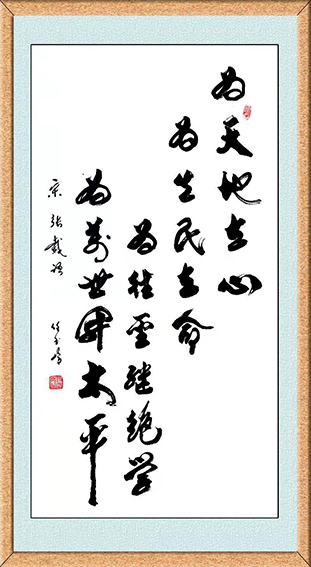 为天地立心
为生民立命
为往圣继绝学
为萬世开太平
宋 张载语